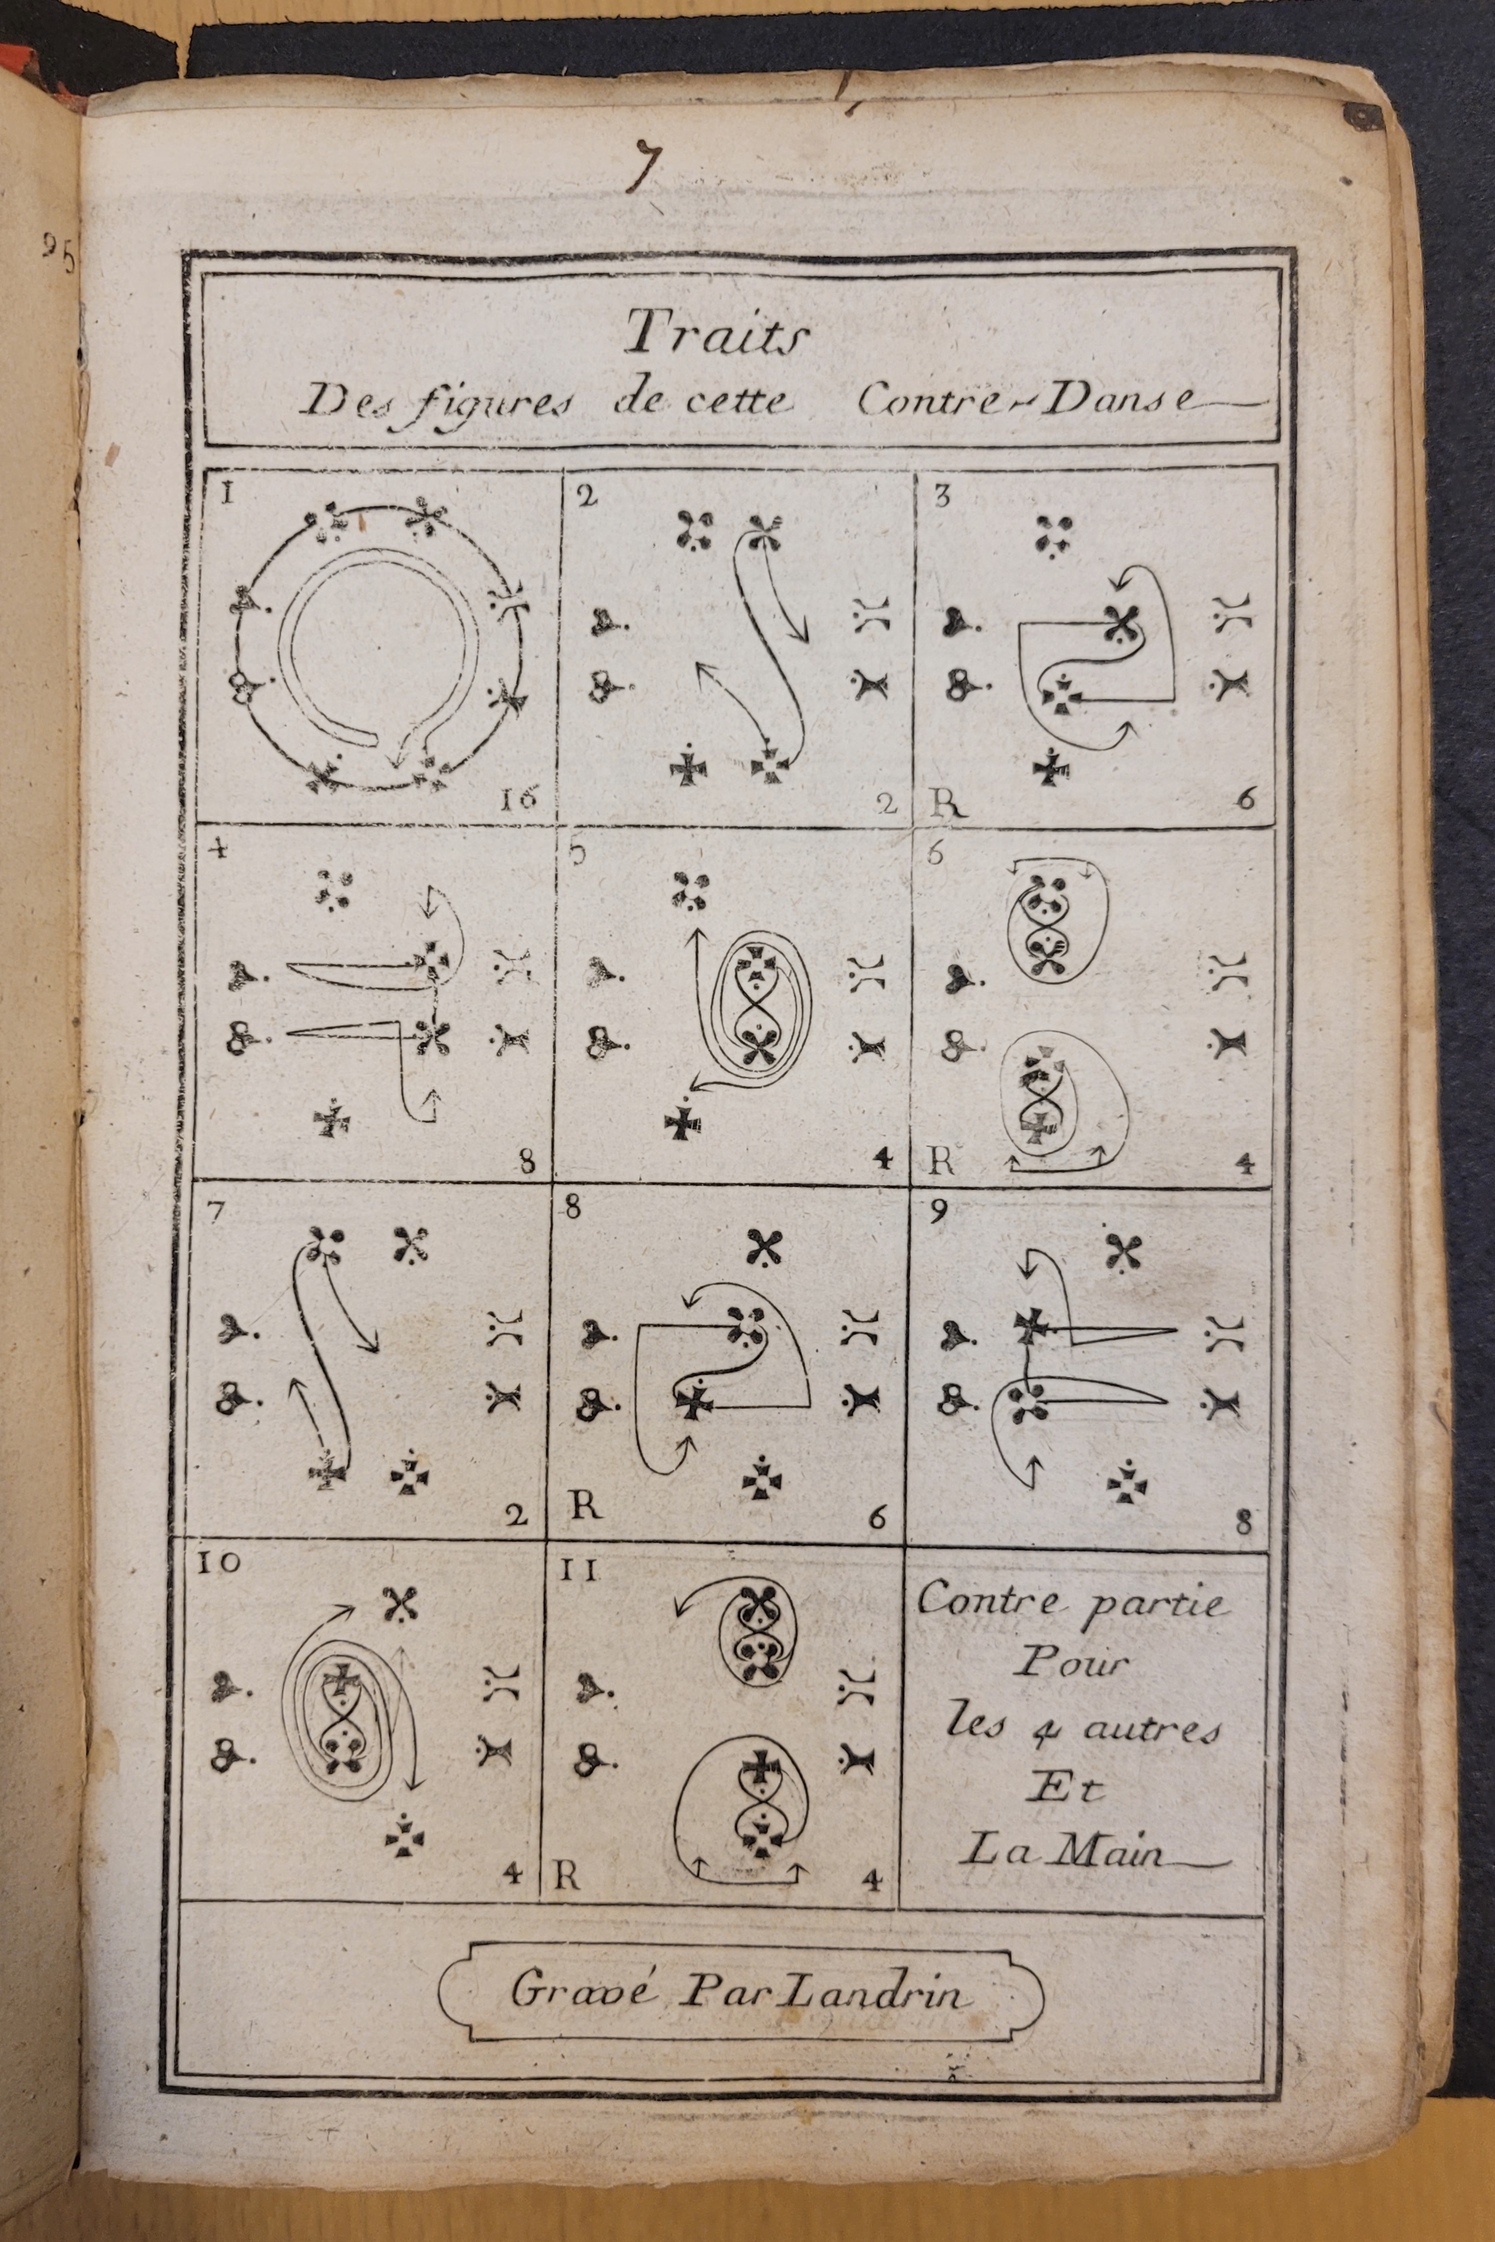 95
7
Traits
Des figures de cette Contre-Danse
1
16
2
2
3
R
6
4
8
5
4
6
R
4
7
2
8
R
6
9
8
10
4
11
R
4
Contre partie
Pour
les 4 autres
Et
La Main
Gravé Par Landrin